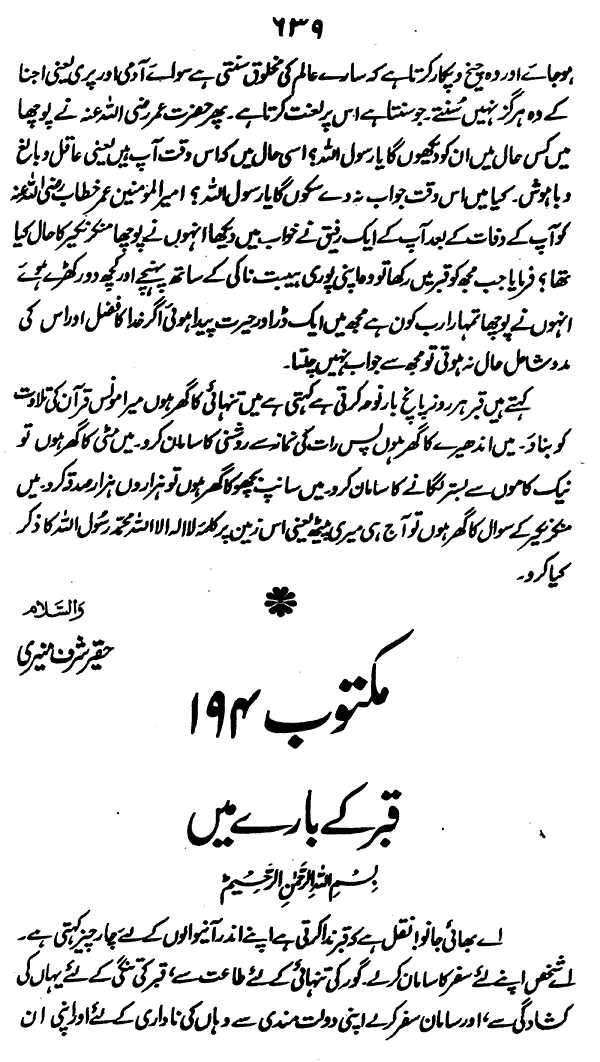 ۶۳۹
ہوجائے اور وہ چیخ و پکار کرتا ہے کہ سارے عالم کی مخلوق سنتی ہے سوائے آدمی اور پری یعنی اجنا
کے وہ ہرگز نہیں سُنتے۔ جو سنتا ہے اس پر لعنت کرتا ہے۔ پھر حضرت عمر رضی اللہ عنہ نے پوچھا
میں کس حال میں ان کو دیکھوں گا یا رسول اللہ؟ اسی حال میں کہ اس وقت آپ ہیں یعنی عاقل و بالغ
و باہوش۔ کیا میں اس وقت جواب نہ دے سکوں گا یا رسول اللہ؟ امیر المؤمنین عمر خطاب رضی اللہ عنہ
کو آپ کے وفات کے بعد آپ کے ایک رفیق نے خواب میں دیکھا انہوں نے پوچھا منکر نکیر کا حال کیا
تھا؟ فرمایا جب مجھ کو قبر میں رکھا تو وہ اپنی پوری ہیبت ناکی کے ساتھ پہنچے اور کچھ دور کھڑے ہوئے
انہوں نے پوچھا تمہارا رب کون ہے مجھ میں ایک ڈر اور حیرت پیدا ہوئی اگر خدا کا فضل اور اس کی
مدد شامل حال نہ ہوتی تو مجھ سے جواب نہیں چلتا۔
کہتے ہیں قبر ہر روز پانچ بار نوحہ کرتی ہے کہتی ہے میں تنہائی کا گھر ہوں میرا مونس قرآن کی تلاوت
کو بناؤ۔ میں اندھیرے کا گھر ہوں پس رات کی نماز سے روشنی کا سامان کرو۔ میں مٹی کا گھر ہوں تو
نیک کاموں سے بستر لگانے کا سامان کرو۔ میں سانپ بچھو کا گھر ہوں تو ہزاروں ہزار صدقہ کرو۔ میں
منکر نکیر کے سوال کا گھر ہوں تو آج ہی میری پیٹھ یعنی اس زمین پر کلمہ لا الہ الا اللہ محمد رسُول اللہ کا ذکر
کیا کرو۔
والسّلام
حقیر شرف منیری
مکتوب ۱۹۴
قبر کے بارے میں
بِسْمِ اللّٰہِ الرَّحْمٰنِ الرَّحِیْمِ
اے بھائی جانو! نقل ہے کہ قبر ندا کرتی ہے اپنے اندر آنیوالوں کے لئے چار چیز کہتی ہے۔
اے شخص اپنے لئے سفر کا سامان کرلے۔ گور کی تنہائی کے لئے طاعت سے، قبر کی تنگی کے لئے یہاں کی
کشادگی سے، اور سامان سفر کرلے اپنی دولت مندی سے وہاں کی ناداری کے لئے اور اپنی ان